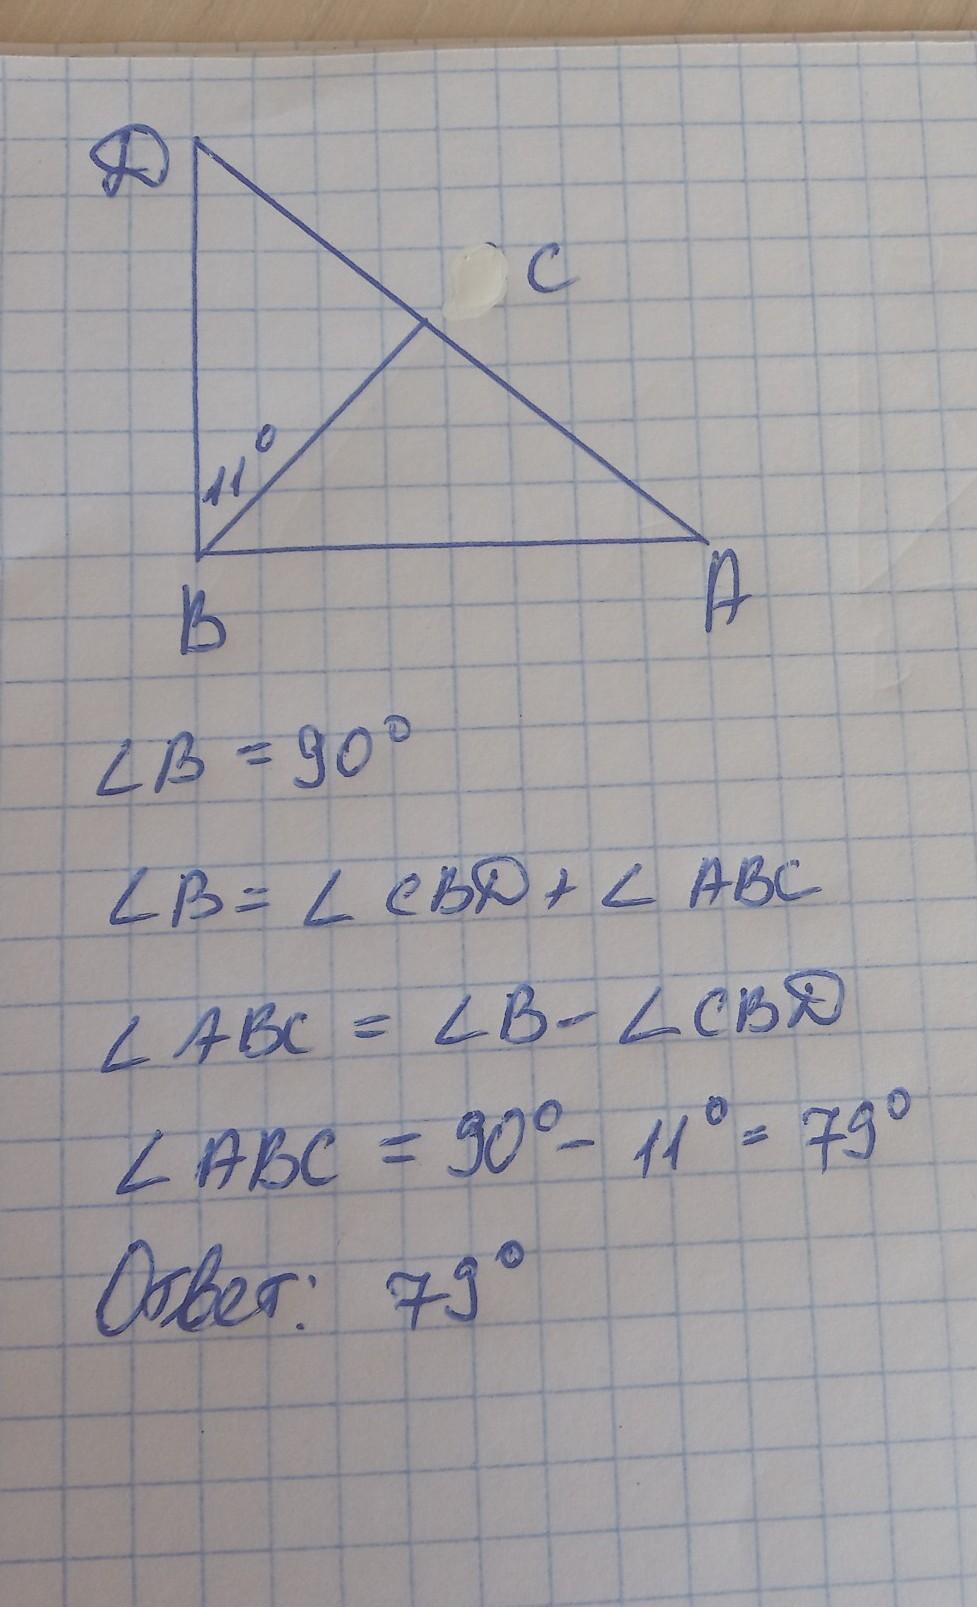 Д
C
11°
B
A
∠B = 90°
∠B = ∠CBД + ∠ABC
∠ABC = ∠B - ∠CBД
∠ABC = 90° - 11° = 79°
Ответ: 79°